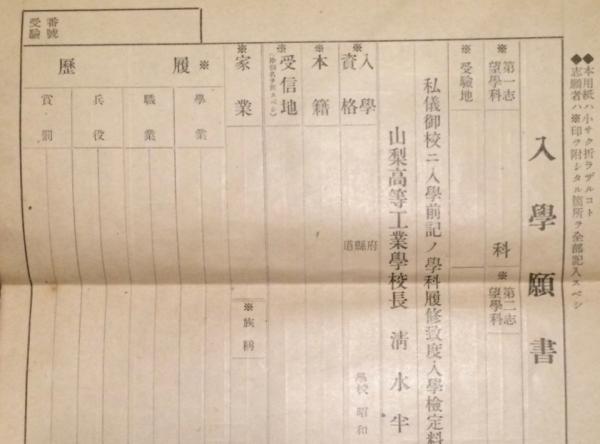 ◆本用紙ハ小サク折ラザルコト
◆志願者ハ※印ヲ附シタル箇所ヲ全部記入スベシ
入學願書
※第一志望學科
科
※第二志望學科
※受驗地
私儀御校ニ入學前記ノ學科履修致度入學檢定料
山梨高等工業學校長 淸水
※入學資格
府縣道
學校 昭和
※本籍
※受信地
※家業
※族稱
※履歷
學業
職業
兵役
賞罰
受驗番號